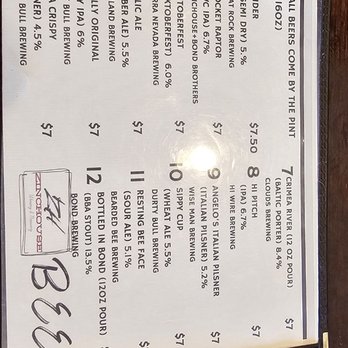 ALL BEERS COME BY THE PINT
(16OZ)
SEMI DRY) 5.%
AT ROCK BREWING
OCKET RAPTOR
IPA) 6.7%
NCHOUSE+BOND BROTHERS
$7.50
KTOBERFEST
KTOBERFEST) 6.0%
RRA NEVADA BREWING
$7
LIC ALE
BER ALE) 5.5%
LAND BREWING
$7
LLY ORIGINAL
Y (IPA) 6%
BULL BREWING
$7
A CRISPY
NER) 4.5%
BULL BREWING
$7
7 CRIMEA RIVER (12 OZ POUR)
(BALTIC PORTER) 8.4%
CLOUDS BREWING
$7
8 HI PITCH
(IPA) 6.7%
HI WIRE BREWING
$7
9 ANGELO'S ITALIAN PILSNER
(ITALIAN PILSNER) 5.2%
WISE MAN BREWING
$7
10 SIPPY CUP
(WHEAT ALE) 5.5%
DURTY BULL BREWING
$7
11 RESTING BEE FACE
(SOUR ALE) 5.1%
BEARDED BEE BREWING
$7
12 BOTTLED IN BOND (12OZ POUR)
(BBA STOUT) 13.5%
BOND BREWING
$
ZINCHOUSE
BEE